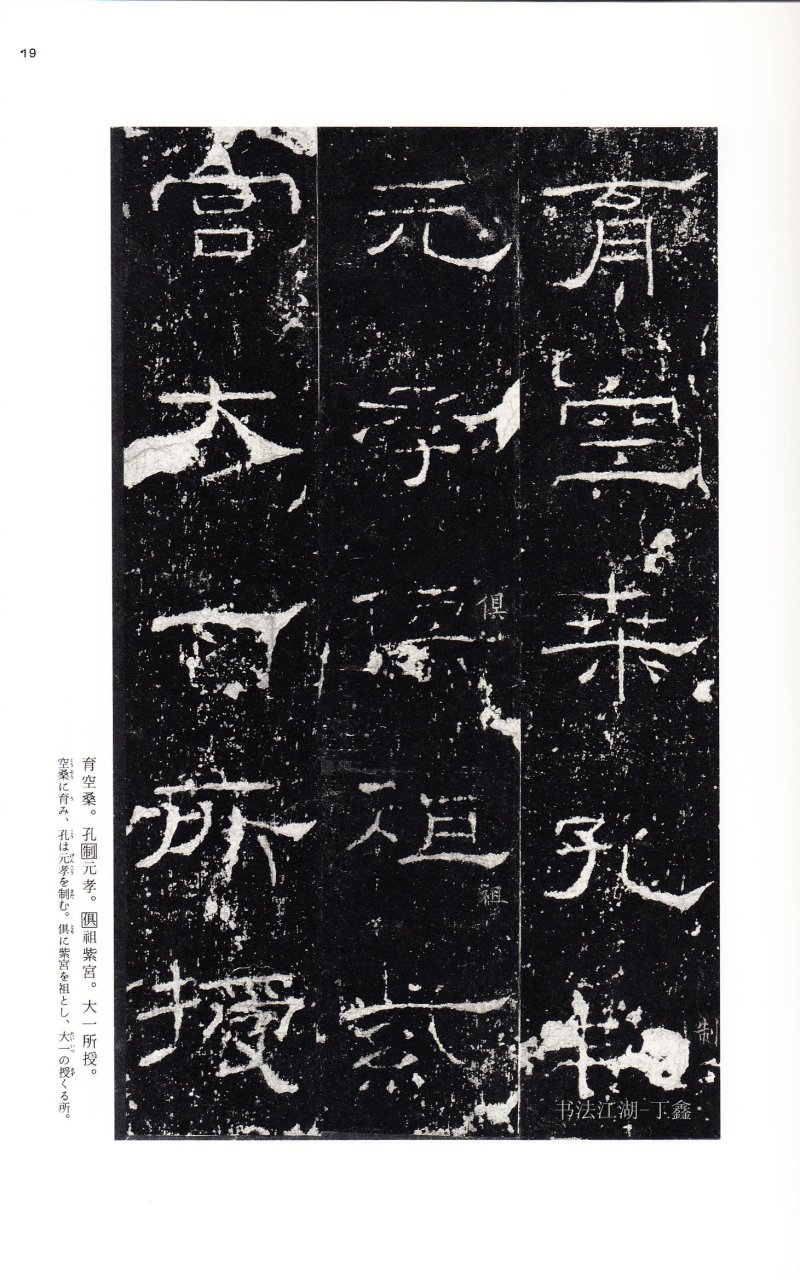 19
育空桑孔制
元孝俱祖紫
宮大一所授
俱
祖
制
育空桑。孔制元孝。俱祖紫宮。大一所授。
空桑に育み、孔は元孝を制む。俱に紫宮を祖とし、大一の授くる所。
书法江湖-鑫